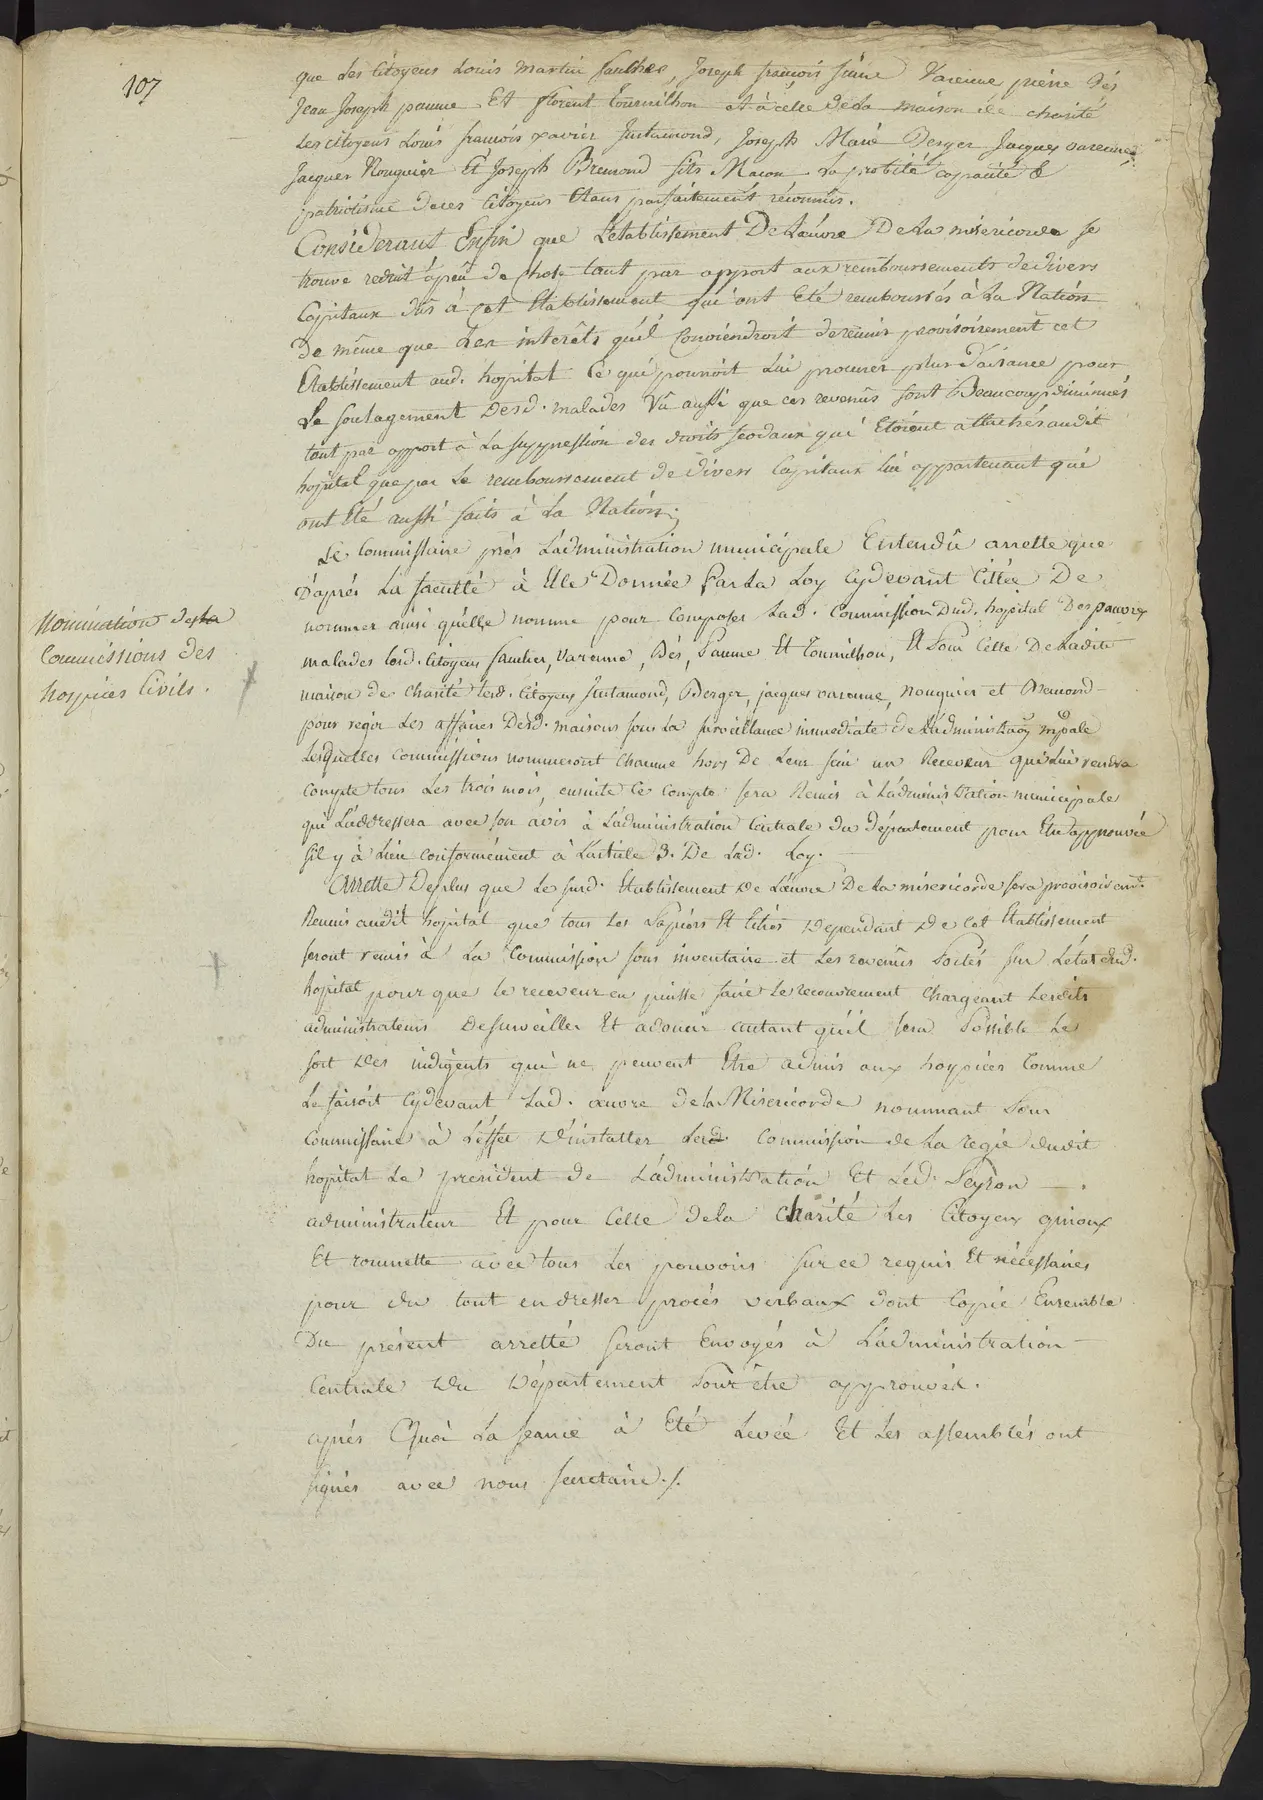 107
que les Citoyens Louis Martin faulhier, Joseph françois féline Varenne pierre Dés
Jean Joseph paume Et florent Tournilhon et à celle de la maison de charité
Les citoyens Louis françois xavier Justamond, Joseph Marie Berger Jacques varenne
Jacques Nouguier Et Joseph Bremond fils Macon la probité capacité &
patriotisme de ces Citoyens Etans parfaitement réconnus.
Considerant Enfin que L'etablissement De Lauvre De La miséricorde se
trouve reduit àpeu de chose tant par apport aux remboursements de divers
Capitaux dûs à cet Etablissement qui ont Eté remboursés à La Nation
De même que Les interêts qu'il Conviendroit de réunir provisoirement cet
Etablissement aud. hopital Ce qui pourroit Lui procurer plus d'aisance pour
Le soulagement Desd. malades Vû aussi que ces revenûs sont Beaucoup diminués
tant par apport à La suppression des droits feodaux qui Etoient attachés audit
hopital que par Le remboursement de divers Capitaux lui appartenant qui
ont Eté aussi faits à La Nation;
Le Commissaire près L'administration municipale Entendû arrette que
D'aprés La faculté à Elle Donnée Par La Loy Cydevant Cittée De
nommer ainsi qu'elle nomme pour Composer Lad. Commission Dud. hopital Des pauvres
malades lesd. Citoyens faulier, Varenne, Dés, Paume Et Tournilhon, Et Pour Celle De Ladite
maison de Charité lesd. Citoyens Justamond, Berger, jacques varenne, nouguier et Bremond
pour regir Les affaires Desd. maisons sous La surveillance immediate de L'administraon mpale
Lesquelles Commissions nommeront chacune hors De Leur sein un Receveur qui Lui rendra
Compte tous Les trois mois, ensuite Ce Compte sera Remis à L'administration municipale
qui L'addressera avec son avis à L'administration Centrale du département pour Etre approuvée
s'il y à Lieu conformément à L'article 3. De Lad. Loy.
Arrette Deplus que Le susd. Etablissement De L'œuvre De La misericorde sera provisoiremt
Reunis audit hopital que tous Les Papiers Et titres Dependant De Cet Etablissement
seront remis à La Commission sous inventaire et Les revenûs Portés sur L'état dud.
hopital pour que le receveur en puisse faire Le recouvrement Chargeant Lesdits
administrateurs De surveiller Et adoucir autant qu'il sera Possible Le
sort Des indigents qui ne peuvent Etre admis aux hospices Comme
Le faisoit Cydevant Lad. œuvre de la Misericorde nommant Pour
Commissaire à L'effet D'installer Lesd. Commission de La regie dudit
hopital Le president de L'administration Et Led. Peyron
administrateur Et pour Celle de la Charité Les Citoyens ginoux
Et roumette avec tous Les pouvoirs sur ce requis Et nécessaires
pour du tout en dresser procés verbaux dont Copie Ensemble
Du présent arretté seront Envoyés à L'administration
Centrale Du Département Pour être approuvés.
aprés Quoi La séance à Eté Levée Et Les assemblés ont
signés avec nous secretaire./.
Nomination de la
Commissions des
hospices Civils.